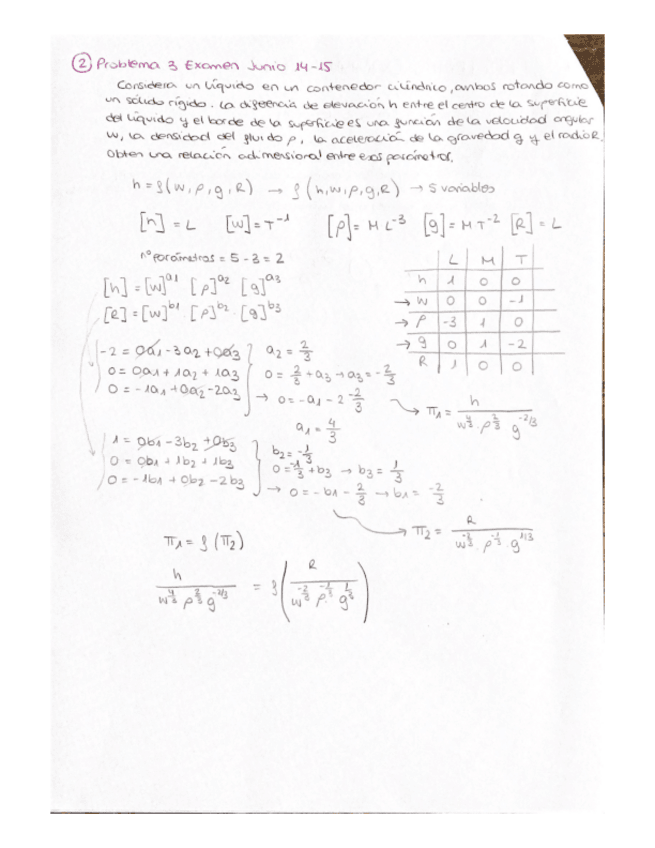 ② Problema 3 Examen Junio 14-15
Considera un líquido en un contenedor cilíndrico, ambos rotando como
un sólido rígido. La diferencia de elevación h entre el centro de la superficie
del líquido y el borde de la superficie es una función de la velocidad angular
w, la densidad del fluido ρ, la aceleración de la gravedad g y el radio R.
Obten una relación adimensional entre esos parámetros.
h = f(w, ρ, g, R) → f(h, w, ρ, g, R) → 5 variables
[h] = L [w] = T⁻¹ [ρ] = M L⁻³ [g] = M T⁻² [R] = L
nº parámetros = 5 - 3 = 2
[h] = [w]^a1 · [ρ]^a2 [g]^a3
[R] = [w]^b1 · [ρ]^b2 · [g]^b3
L M T
h 1 0 0
→ w 0 0 -1
→ ρ -3 1 0
→ g 0 1 -2
R 1 0 0
-2 = 0a1 - 3a2 + 0a3
0 = 0a1 + 1a2 + 1a3
0 = -1a1 + 0a2 - 2a3
a2 = 2/3
0 = 2/3 + a3 → a3 = -2/3
→ 0 = -a1 - 2 -2/3
a1 = 4/3
→ π1 = h / (w^4/3 · ρ^2/3 g^-2/3)
1 = 0b1 - 3b2 + 0b3
0 = 0b1 + 1b2 + 1b3
0 = -1b1 + 0b2 - 2b3
b2 = -1/3
0 = -1/3 + b3 → b3 = 1/3
→ 0 = -b1 - 2/3 → b1 = -2/3
→ π2 = R / (w^-2/3 · ρ^-1/3 · g^1/3)
π1 = f(π2)
h / (w^4/3 ρ^2/3 g^-2/3) = f(R / (w^-2/3 ρ^-1/3 g^1/3))